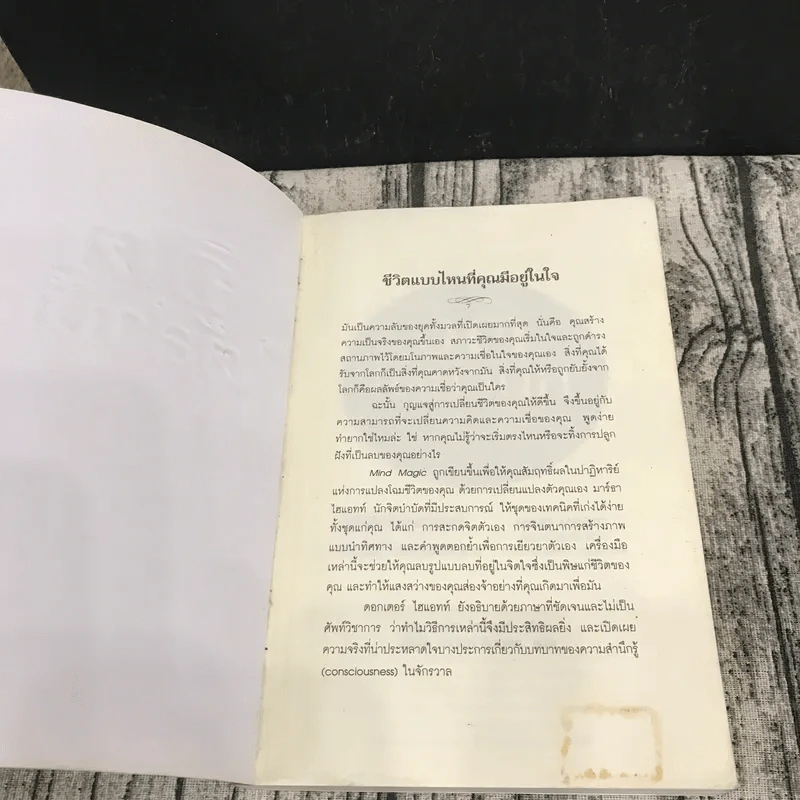 ชีวิตแบบไหนที่คุณมีอยู่ในใจ
มันเป็นความลับของยุคทั้งมวลที่เปิดเผยมากที่สุด นั่นคือ คุณสร้าง
ความเป็นจริงของคุณขึ้นเอง สภาวะชีวิตของคุณเริ่มในใจและถูกดำรง
สถานภาพไว้โดยมโนภาพและความเชื่อในใจของคุณเอง สิ่งที่คุณได้
รับจากโลกก็เป็นสิ่งที่คุณคาดหวังจากมัน สิ่งที่คุณให้หรือถูกยับยั้งจาก
โลกก็คือผลลัพธ์ของความเชื่อว่าคุณเป็นใคร
ฉะนั้น กุญแจสู่การเปลี่ยนชีวิตของคุณให้ดีขึ้น จึงขึ้นอยู่กับ
ความสามารถที่จะเปลี่ยนความคิดและความเชื่อของคุณ พูดง่าย
ทำยากใช่ไหมล่ะ ใช่ หากคุณไม่รู้ว่าจะเริ่มตรงไหนหรือจะทิ้งการปลูก
ฝังที่เป็นลบของคุณอย่างไร
Mind Magic ถูกเขียนขึ้นเพื่อให้คุณสัมฤทธิ์ผลในปาฏิหาริย์
แห่งการแปลงโฉมชีวิตของคุณ ด้วยการเปลี่ยนแปลงตัวคุณเอง มาร์ธา
ไฮแอทท์ นักจิตบำบัดที่มีประสบการณ์ ให้ชุดของเทคนิคที่เก่งได้ง่าย
ทั้งชุดแก่คุณ ได้แก่ การสะกดจิตตัวเอง การจินตนาการสร้างภาพ
แบบนำทิศทาง และคำพูดตอกย้ำเพื่อการเยียวยาตัวเอง เครื่องมือ
เหล่านี้จะช่วยให้คุณลบรูปแบบลบที่อยู่ในจิตใจซึ่งเป็นพิษแก่ชีวิตของ
คุณ และทำให้แสงสว่างของคุณส่องจ้าอย่างที่คุณเกิดมาเพื่อมัน
ดอกเตอร์ ไฮแอทท์ ยังอธิบายด้วยภาษาที่ชัดเจนและไม่เป็น
ศัพท์วิชาการ ว่าทำไมวิธีการเหล่านี้จึงมีประสิทธิผลยิ่ง และเปิดเผย
ความจริงที่น่าประหลาดใจบางประการเกี่ยวกับบทบาทของความสำนึกรู้
(consciousness) ในจักรวาล